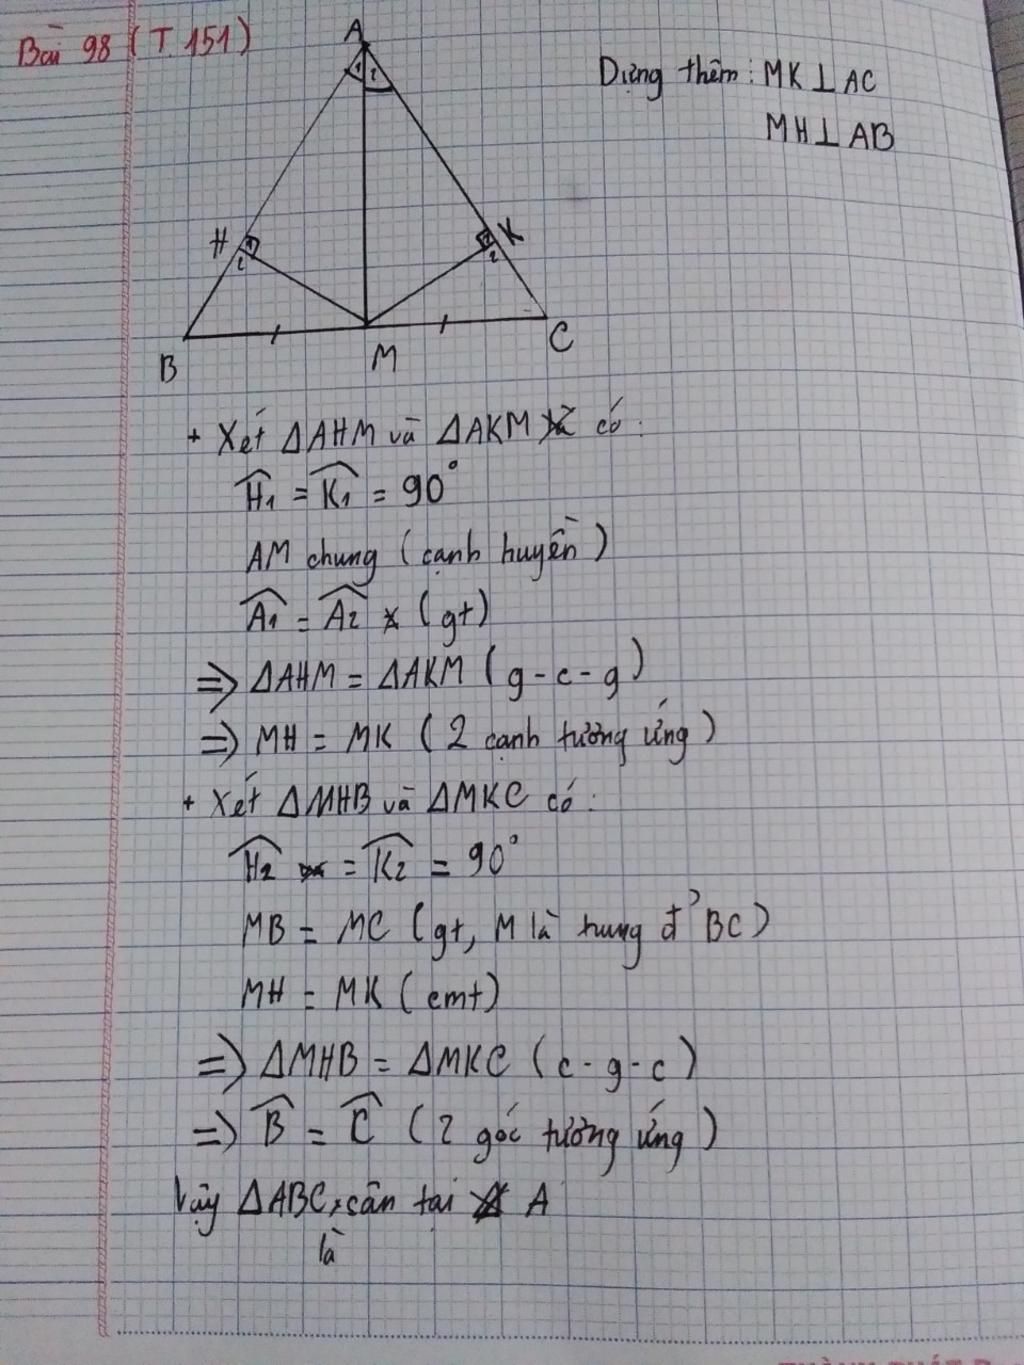 Bài 98 (T 151)
Dựng thêm: MK⊥AC
MH⊥AB
A
1 2
H 1
2
1 K
2
B
M
C
+ Xét ΔAHM và ΔAKM có:
Ĥ₁ = K̂₁ = 90°
AM chung (cạnh huyền)
Â₁ = Â₂ (gt)
=> ΔAHM = ΔAKM (g-c-g)
=> MH = MK (2 cạnh tương ứng)
+ Xét ΔMHB và ΔMKC có:
Ĥ₂ = K̂₂ = 90°
MB = MC (gt, M là trung đ' BC)
MH = MK (cmt)
=> ΔMHB = ΔMKC (c-g-c)
=> B̂ = Ĉ (2 góc tương ứng)
Vậy ΔABC là cân tại A